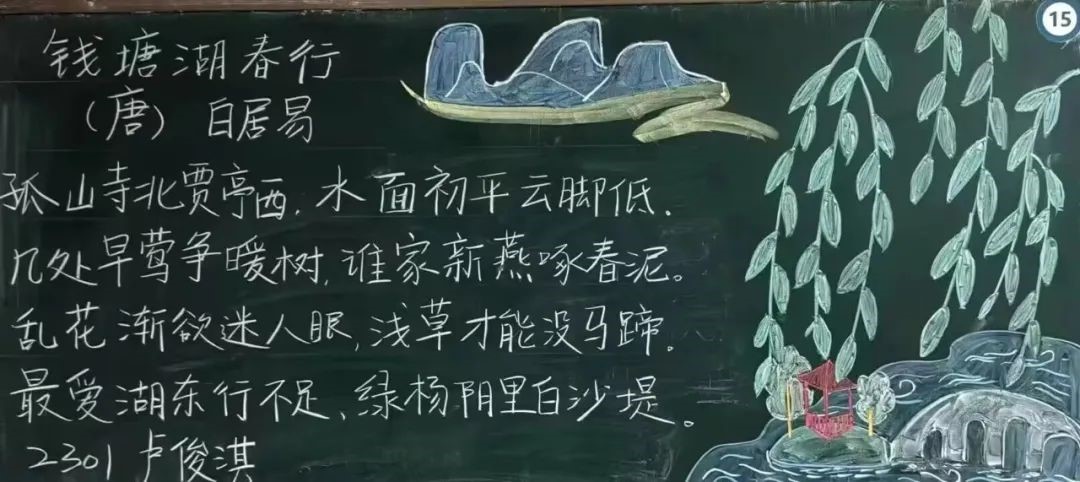 钱塘湖春行
(唐) 白居易
孤山寺北贾亭西.水面初平云脚低.
几处早莺争暖树,谁家新燕啄春泥。
乱花渐欲迷人眼,浅草才能没马蹄。
最爱湖东行不足、绿杨阴里白沙堤。
2301 卢俊淇
15